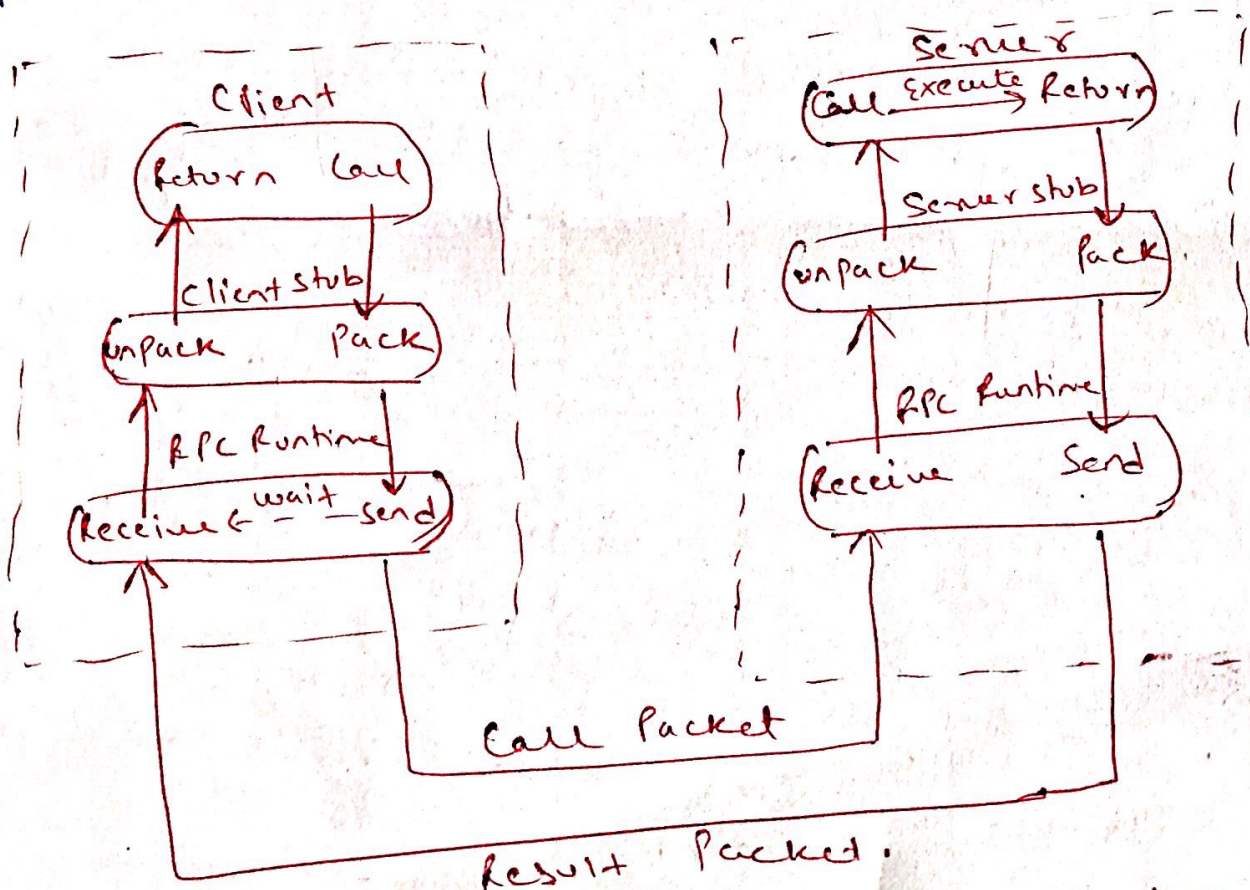 Client
Return Call
Client Stub
unpack Pack
RPC Runtime
Receive wait Send
Server
Call Execute Return
Server Stub
unpack Pack
RPC Runtime
Receive Send
Call Packet
Result Packet.